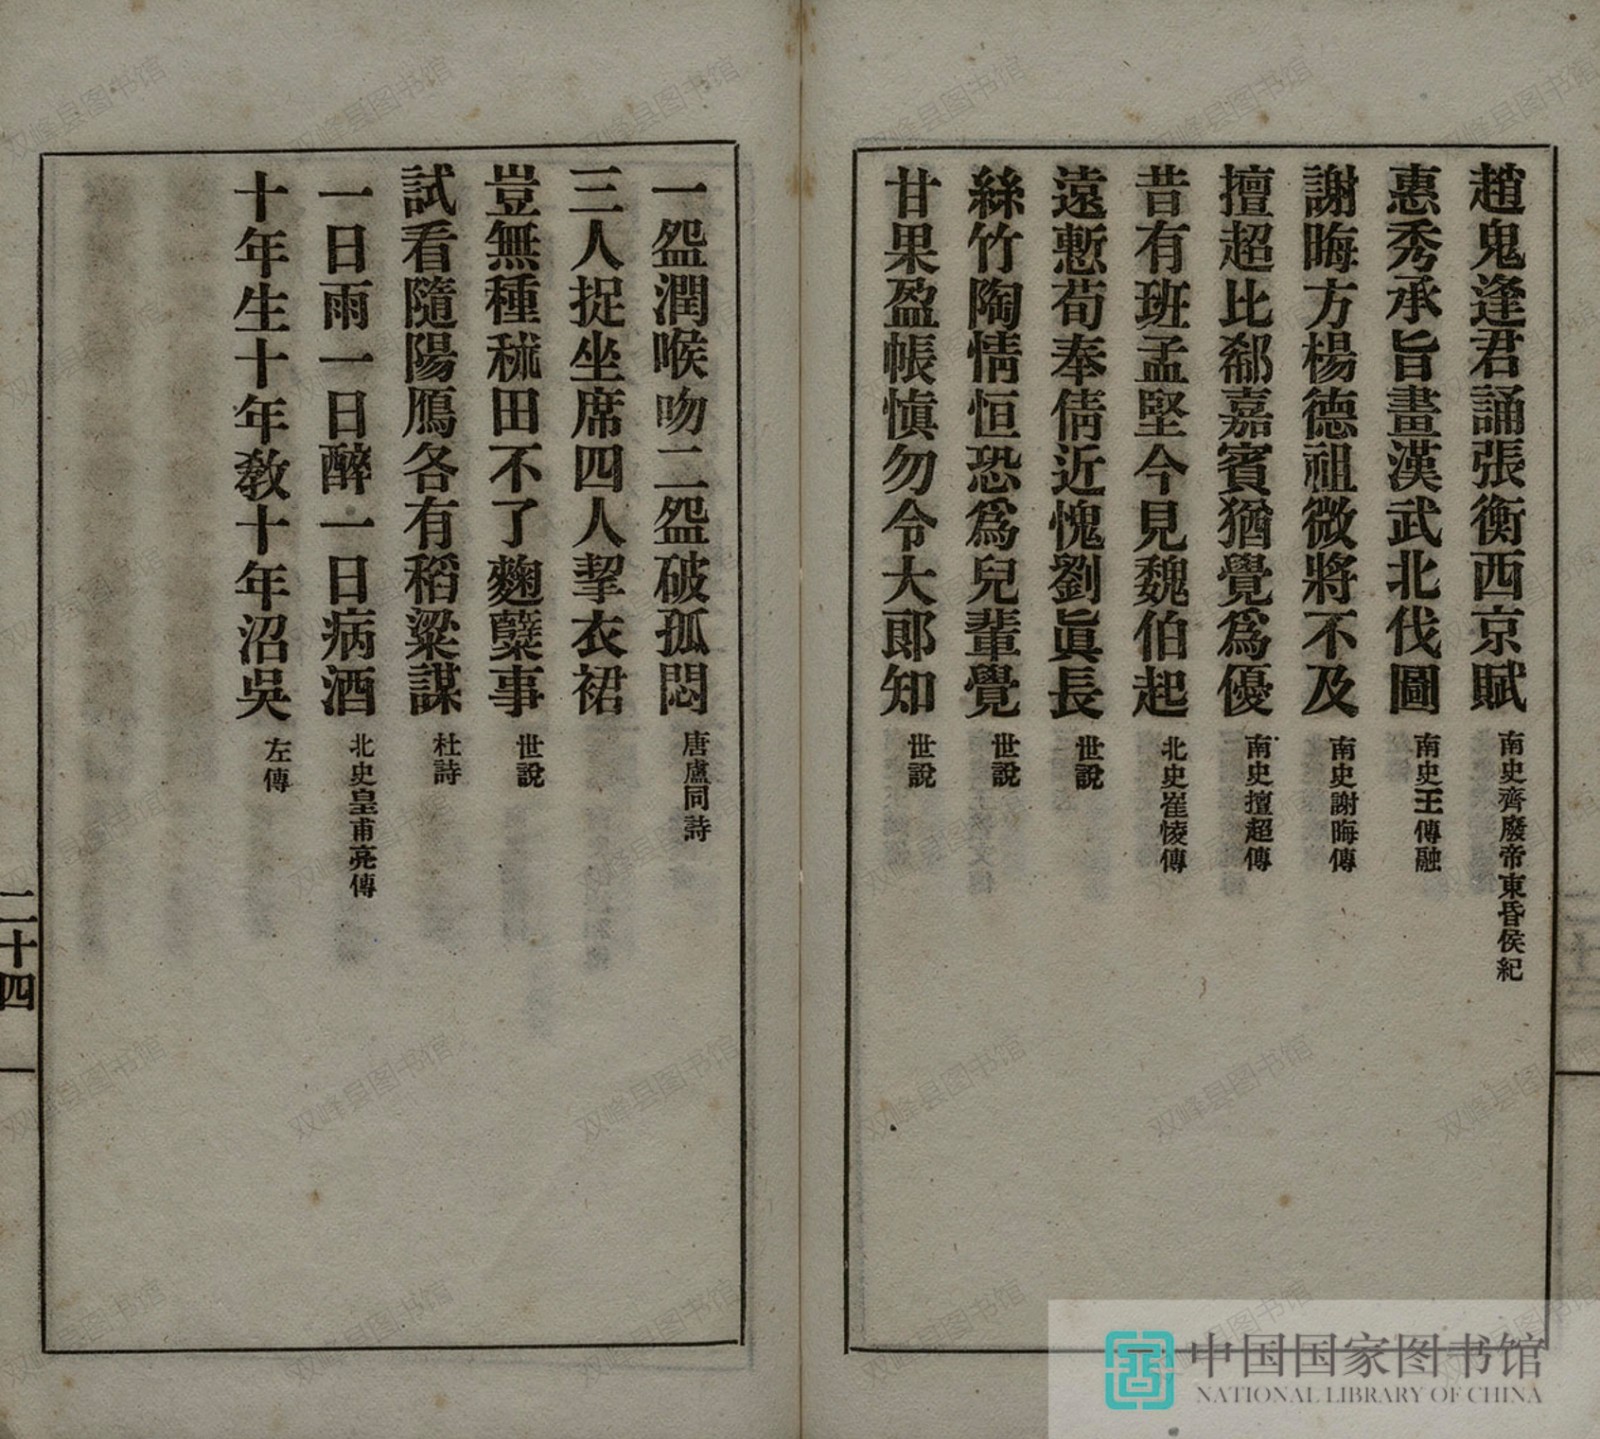 趙鬼逢君誦張衡西京賦 南史齊廢帝東昏侯紀
惠秀承旨畫漢武北伐圖 南史王傳融
謝晦方楊德祖微將不及 南史謝晦傳
擅超比郗嘉賓猶覺爲優 南史擅超傳
昔有班孟堅今見魏伯起 北史崔㥄傳
遠慙荀奉倩近愧劉眞長 世說
絲竹陶情恒恐爲兒輩覺 世說
甘果盈帳愼勿令大郎知 世說
一盌潤喉吻二盌破孤悶 唐盧同詩
三人捉坐席四人挈衣裙
豈無種秫田不了麴糱事 世說
試看隨陽鴈各有稻粱謀 杜詩
一日雨一日醉一日病酒 北史皇甫亮傳
十年生十年教十年沼吳 左傳
二十四
中国国家图书馆
NATIONAL LIBRARY OF CHINA
双峰县图书馆